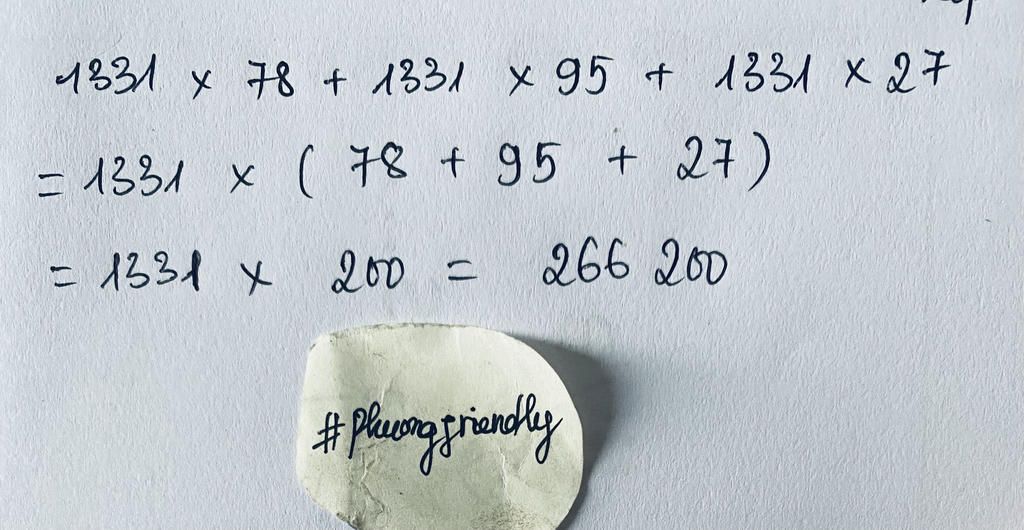 1331 x 78 + 1331 x 95 + 1331 x 27
= 1331 x ( 78 + 95 + 27 )
= 1331 x 200 = 266 200
#phuongfriendly